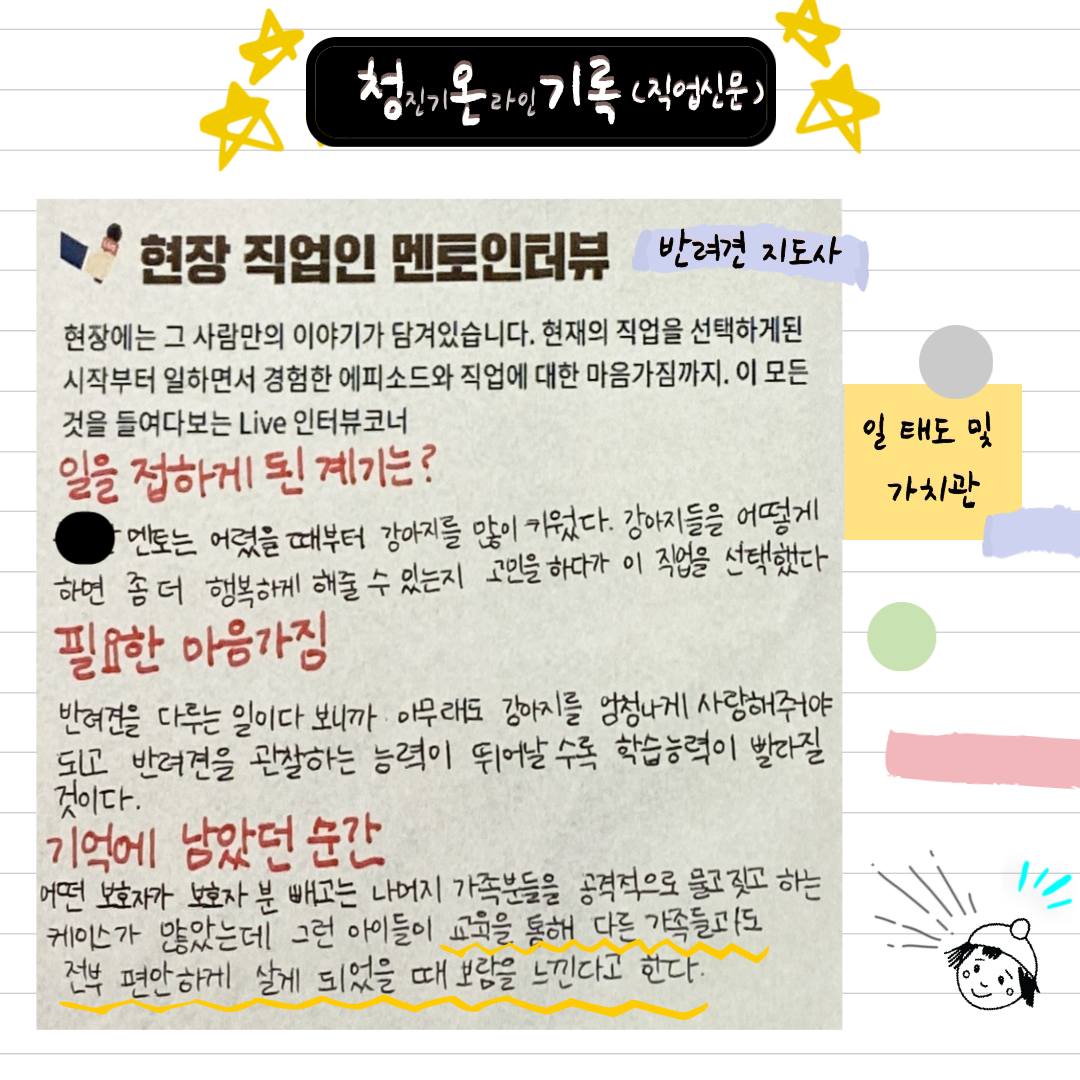 청진기온라인기록(직업신문)
현장 직업인 멘토인터뷰
반려견 지도사
현장에는 그 사람만의 이야기가 담겨있습니다. 현재의 직업을 선택하게된
시작부터 일하면서 경험한 에피소드와 직업에 대한 마음가짐까지. 이 모든
것을 들여다보는 Live 인터뷰코너
일을 접하게 된 계기는?
멘토는 어렸을 때부터 강아지를 많이 키웠다. 강아지들을 어떻게
하면 좀 더 행복하게 해줄 수 있는지 고민을 하다가 이 직업을 선택했다
필요한 마음가짐
반려견을 다루는 일이다 보니까 아무래도 강아지를 엄청나게 사랑해주어야
되고 반려견을 관찰하는 능력이 뛰어날 수록 학습능력이 빨라질
것이다.
기억에 남았던 순간
어떤 보호자가 보호자 분 빼고는 나머지 가족분들을 공격적으로 물고 짖고 하는
케이스가 많았는데 그런 아이들이 교육을 통해 다른 가족들과도
전부 편안하게 살게 되었을 때 보람을 느낀다고 한다.
일 태도 및
가치관